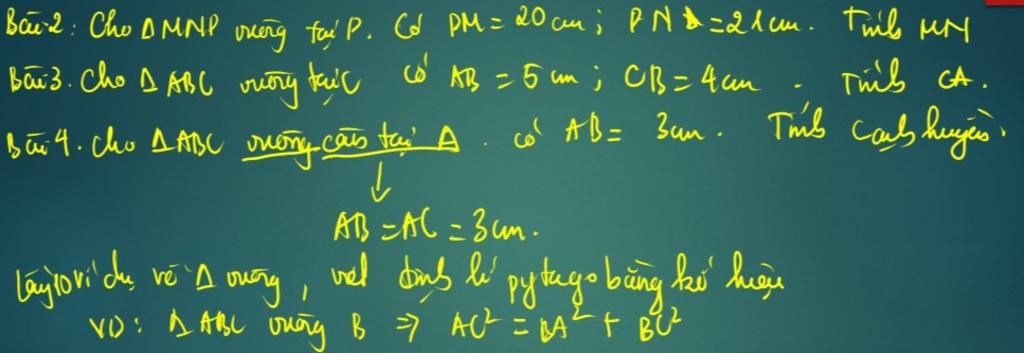 Bài 2: Cho Δ MNP vuông tại P. Có PM = 20 cm; PN = 21cm. Tính MN
Bài 3. Cho Δ ABC vuông tại C có AB = 5 cm; CB = 4cm. Tính CA.
Bài 4. cho Δ ABC vuông cân tại A. có AB = 3cm. Tính cạnh huyền.
↓
AB = AC = 3cm.
Lấy 10 ví dụ về Δ vuông, viết định lí pytago bằng kí hiệu
VD: Δ ABC vuông B ⇒ AC² = BA² + BC²